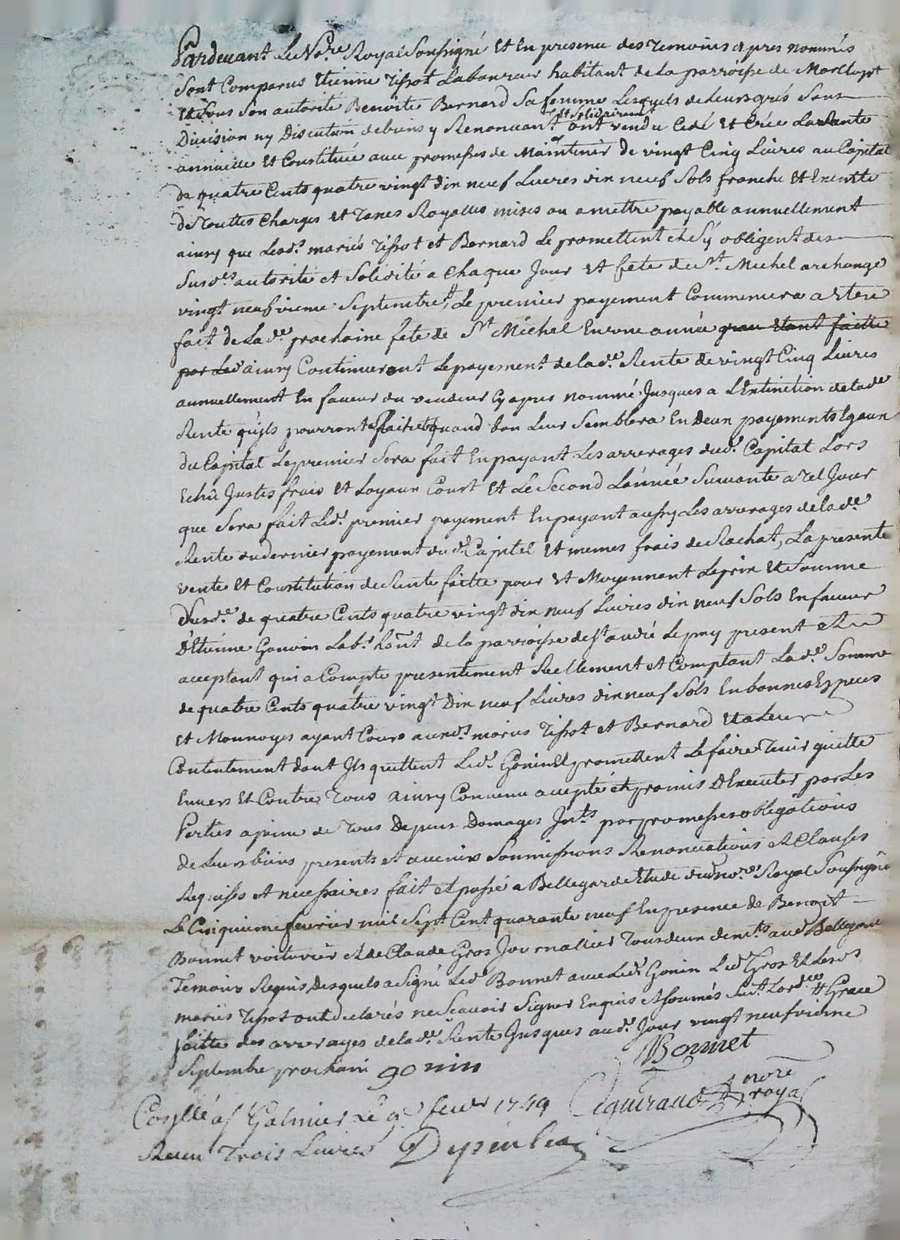 Pardevant Le No.re Royal Soussigné Et En presence des Temoins apres nommés
Sont Comparus Etienne Tissot Laboureur habitant de La parroisse de
Et Sous Son autorité Benoite Bernard Sa femme Lesquels de Leurs grés Sans
Division ny Discution de biens y Renonçant Et Solidairement ont vendu Cedé Et Créé La Rante
annuelle Et Constituée avec promesses de Maintenir de vingt Cinq Livres au Capital
de quatre Cents quatre vingt dix neuf Livres dix neuf Sols franche Et Exente
de Touttes Charges Et Taxes Royalles mises ou a mettre payable annuellement
ainsy que Lesd.s mariés Tissot et Bernard Le promettent Et S'y obligent des
Susd.es autorité et Solidité a Chaque Jour Et fête de S.t Michel archange
vingt neufvieme Septembre, Le premier payement Commencera a Etre
fait de La d.e prochaine fête de S.t Michel En une année
ainsy Continueront Le payement de lad.e Rente de vingt Cinq Livres
annuellement En faveur du vendeur Cy apres nommé Jusques a L'Extinction de lad.e
Rente qu'ils pourront faire quand bon Leur Semblera En Deux payements Egaux
du Capital Le premier Sera fait En payant Les arrerages dud.t Capital Lors
Echû Justes frais Et Loyaux Court Et Le Second L'année Suivante a Tel Jour
que Sera fait Led.t premier payement En payant aussy Les arrerages de lad.e
Rente au dernier payement du d.t Capital Et memes frais de Rachat, La presente
vente Et Constitution de Rente faitte pour Et Moyennant Le prix Et Somme
Susd.e de quatre Cents quatre vingt dix neuf Livres dix neuf Sols En faveur
D'Etienne Gonin Lab.r ha.nt de la parroisse de S.t andré Le puy present Et
acceptant qui a Compté presentement Reellement et Comptant Lad.e Somme
de quatre Cents quatre vingt Dix neuf Livres dix neuf Sols En bonnes Especes
Et Monnoyes ayant Cours auxd.s mariés Tissot et Bernard Et a Leur
Contentement dont Ils quittent Led.t Gonin Et promettent Le faire Tenir quitte
Envers Et Contre Tous ainsy Convenu accepté et promis D'Executer par Les
Parties a peine de Tous Depens Domages Int.ts par promesses obligations
de Leurs biens presents et avenirs Soumissions Renonciations Et Clauses
Requises et necessaires fait et passé a Bellegarde Etude dud.t No.re Royal Soussigné
Le Cinquieme fevrier mil Sept Cent quarante neuf En presence de Benoit
Bonnet voiturier Et de Claude Gros Journallier Tous deux dem.ts aud.t Bellegarde
Temoins Requis Desquels a Signé Led.t Bonnet avec Led.t Gonin Led.t Gros Et Lesd.s
mariés Tissot ont Declarés ne Scavoir Signer Enquis Et Sommés # Grace
faitte des arrerages de lad.e Rente Jusques aud.t Jour vingt neufvieme
Septembre prochain gonin Bonnet
Con.llé a S.t Galmier Le 9.e fevr 1749 no.re royal
Receu Trois Livres